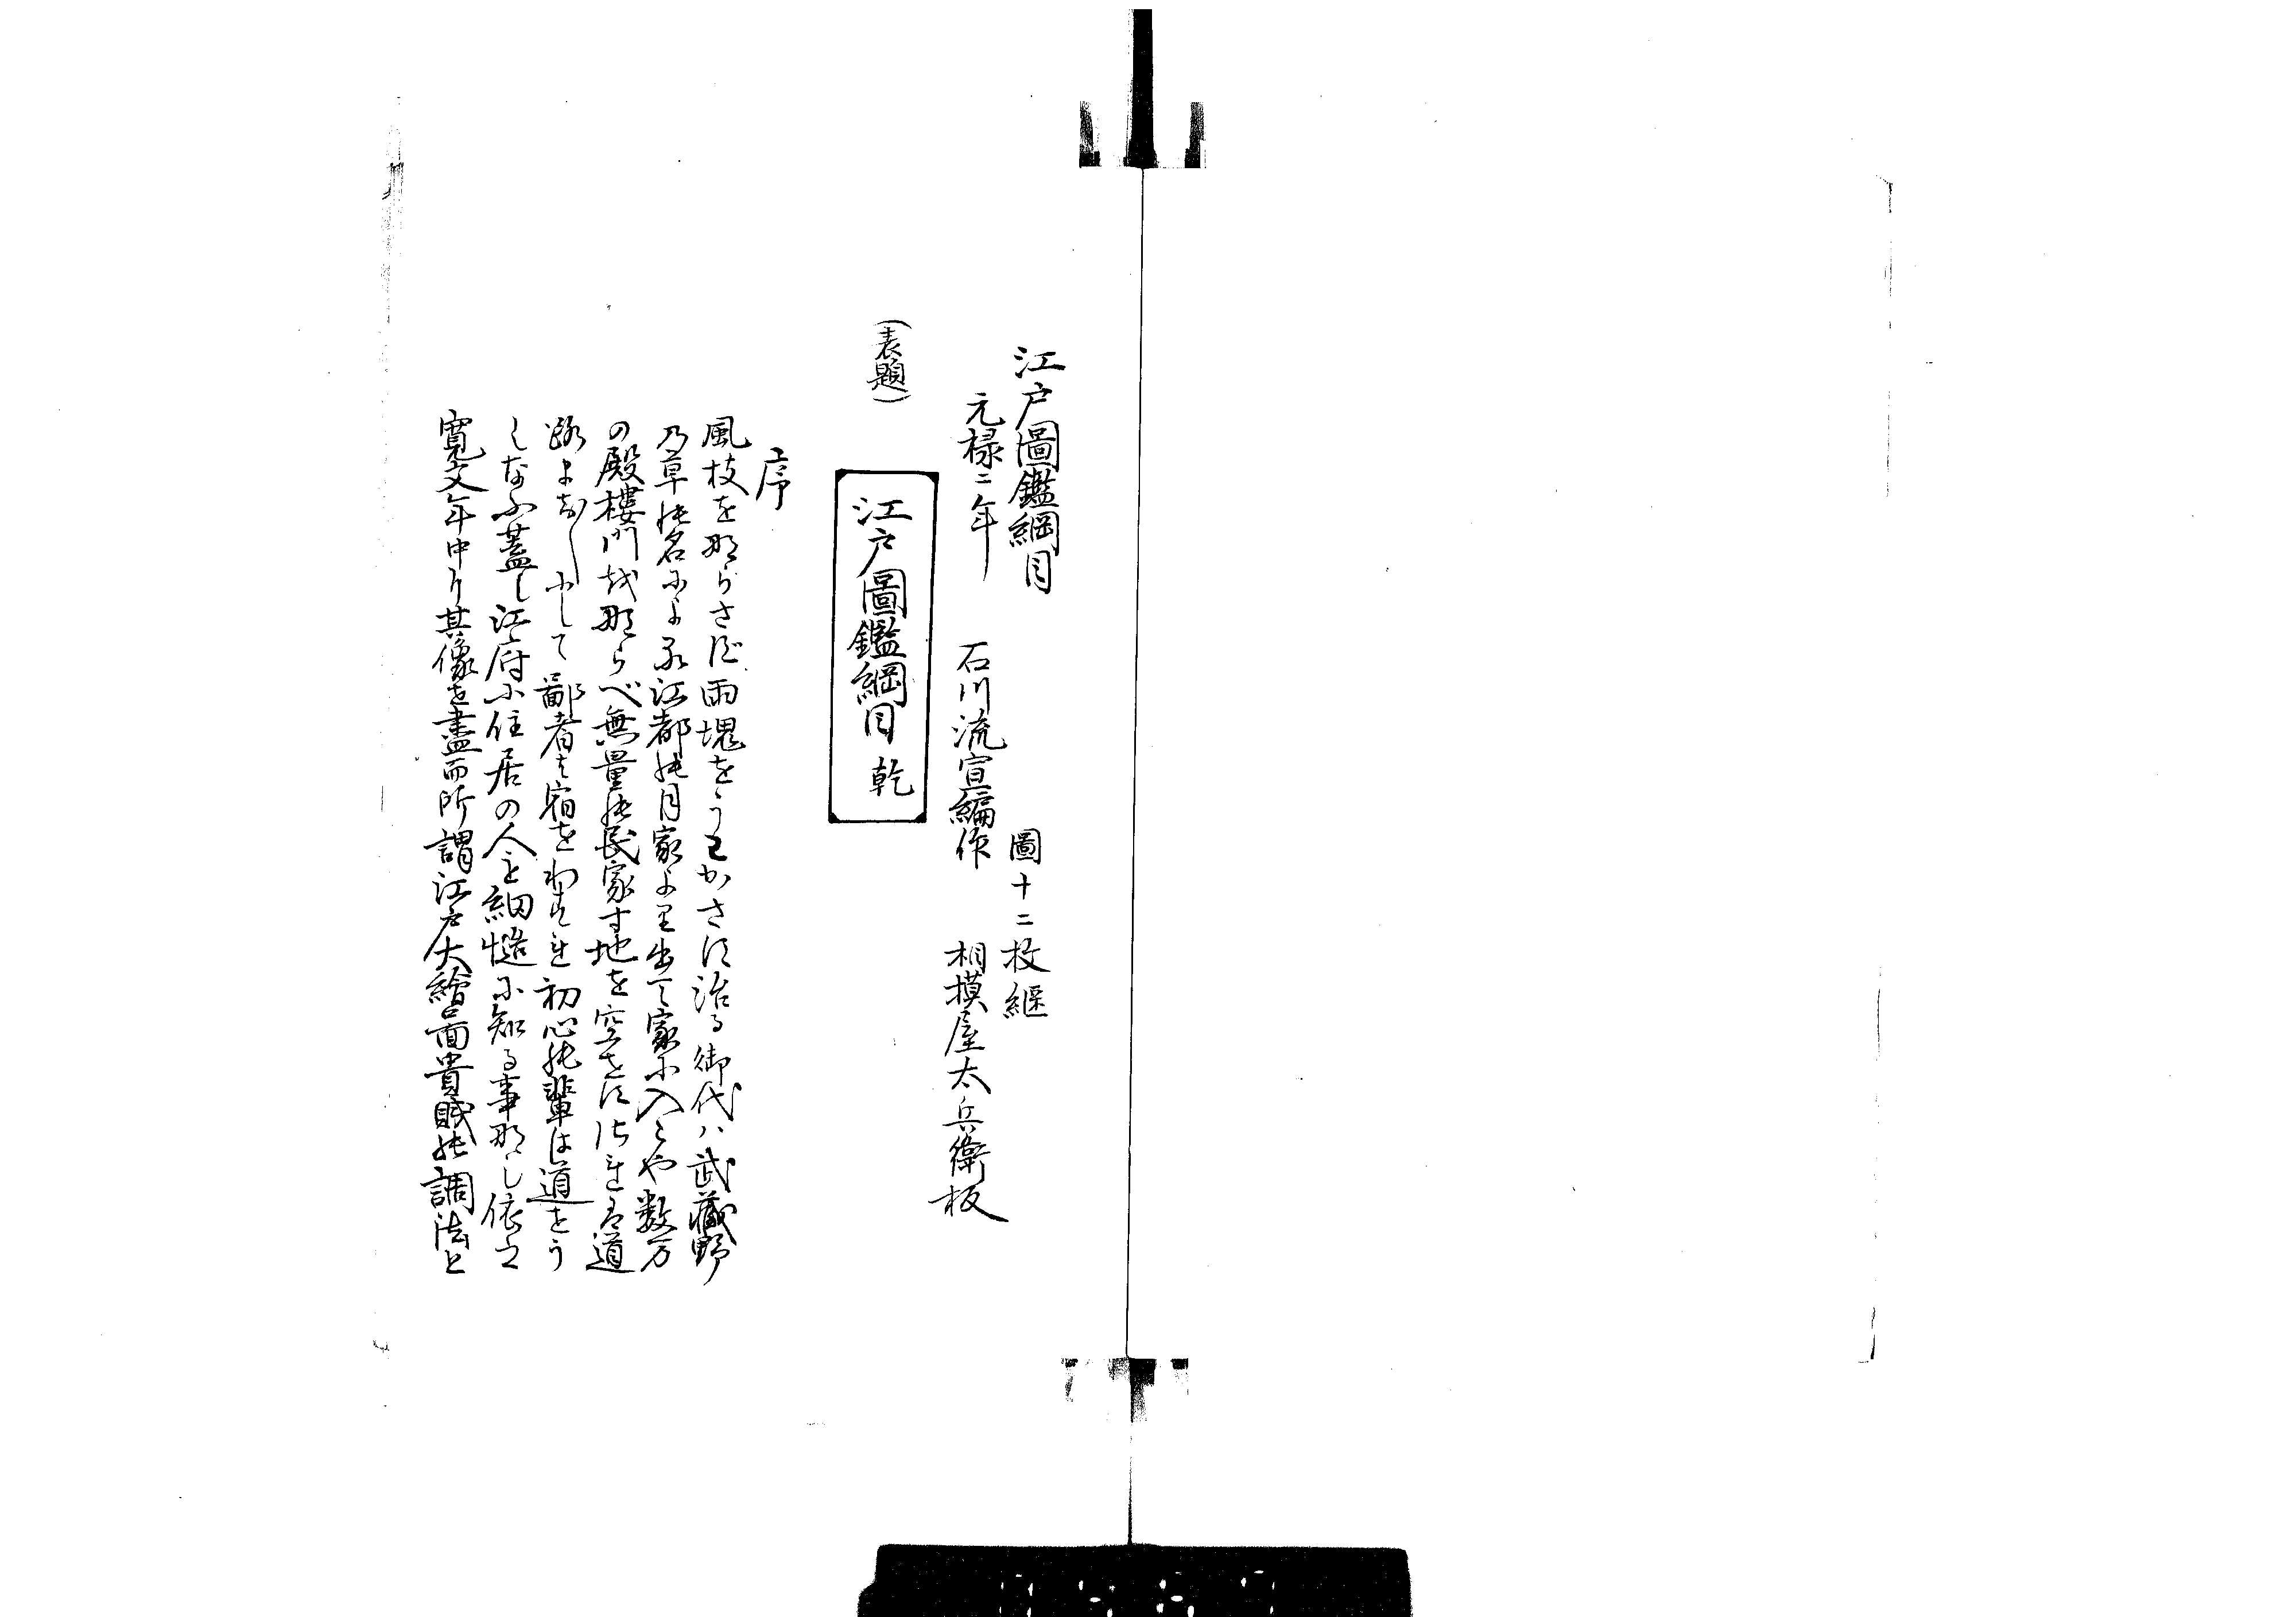 江戸圖鑑綱目
圖十二枚継
元禄二年
石川流宣編作
相摸屋太兵衛板
(表題)
江戸圖鑑綱目 乾
序
風枝を那らさ須雨塊をうごかさ須治る御代ハ武藏野
乃草能名尓よ流江都能月家より出て家尓入とや数万
の殿樓門越那らべ無量能民家寸地を空せ須
路尓して鄙者は宿をわすれ初心能輩は道をう
しなふ蓋し江府尓住居の人も細慥尓知る事那し依之
寛文年中ゟ其像を盡而所謂江戸大繪圖面貴賎能調法と